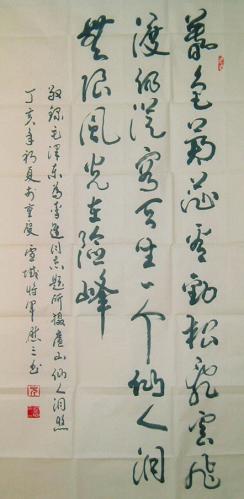 暮色苍茫看劲松乱云飞
渡仍从容天生一个仙人洞
无限风光在险峰
敬录毛泽东为李进同志题所摄庐山仙人洞照
丁亥年初夏于重庆雪域将军